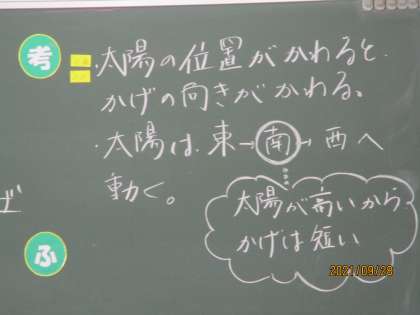 考
・太陽の位置がかわると、
かげの向きがかわる。
・太陽は、東→南→西へ
動く。
太陽が高いから
かげは短い
ふ
2021/09/28